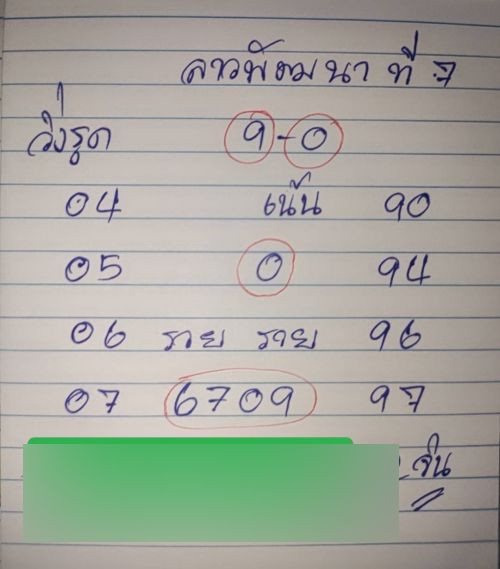 ลาวพัฒนา ที่ 7
วิ่งรูด 9-0
04 เน้น 90
05 0 94
06 รวย รวย 96
07 6709 97